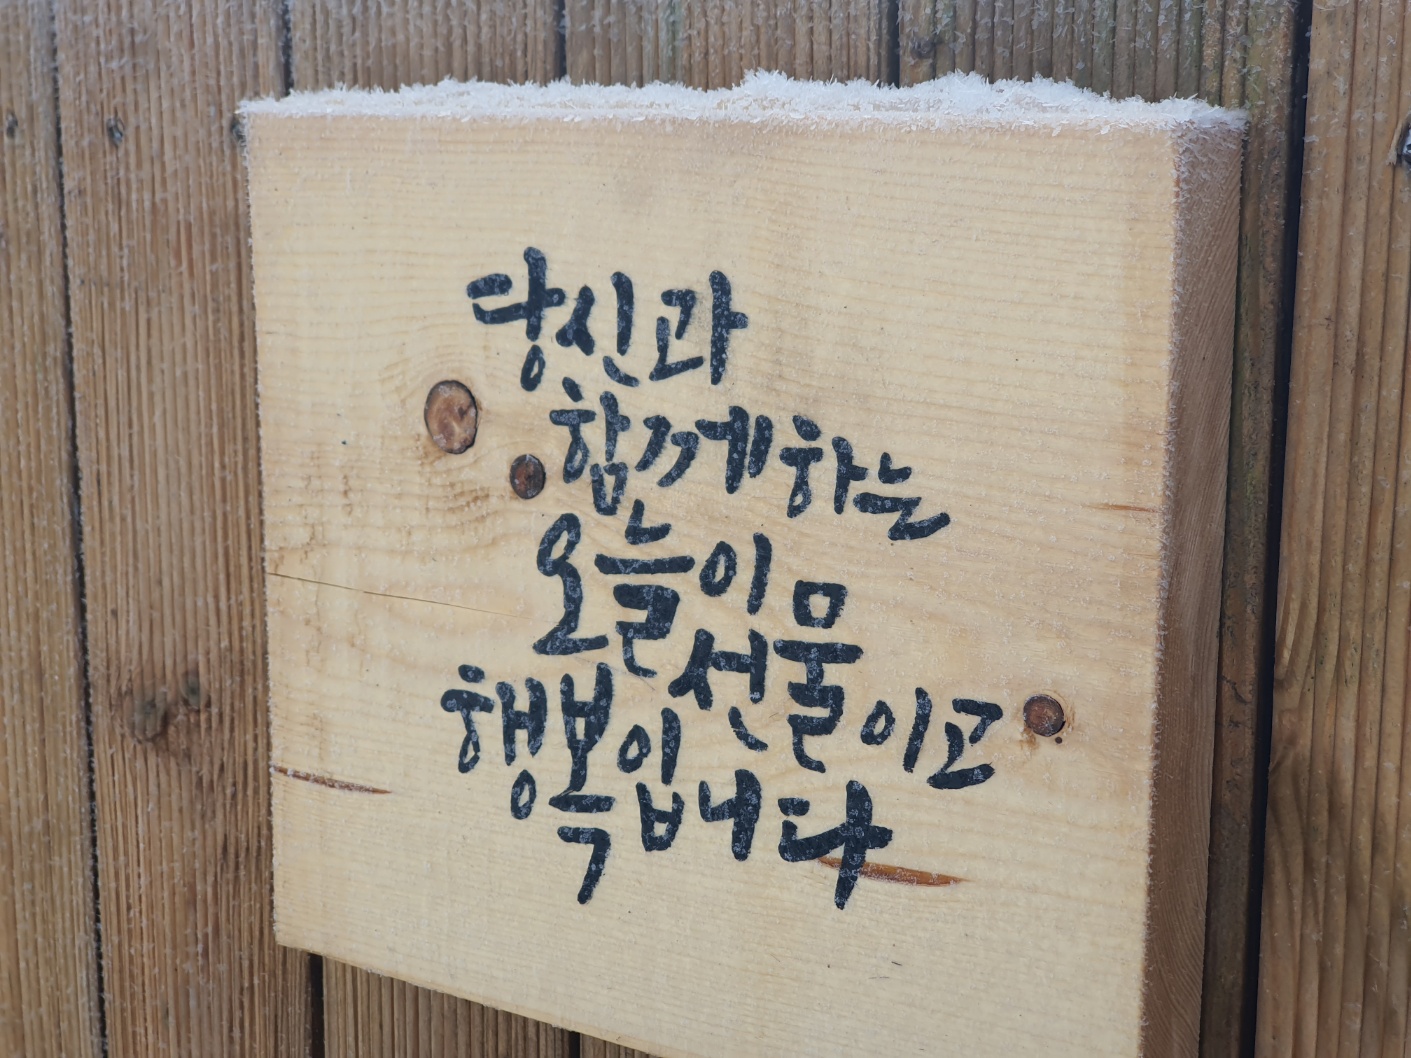 당신과
함께하는
오늘이
선물이고
행복입니다